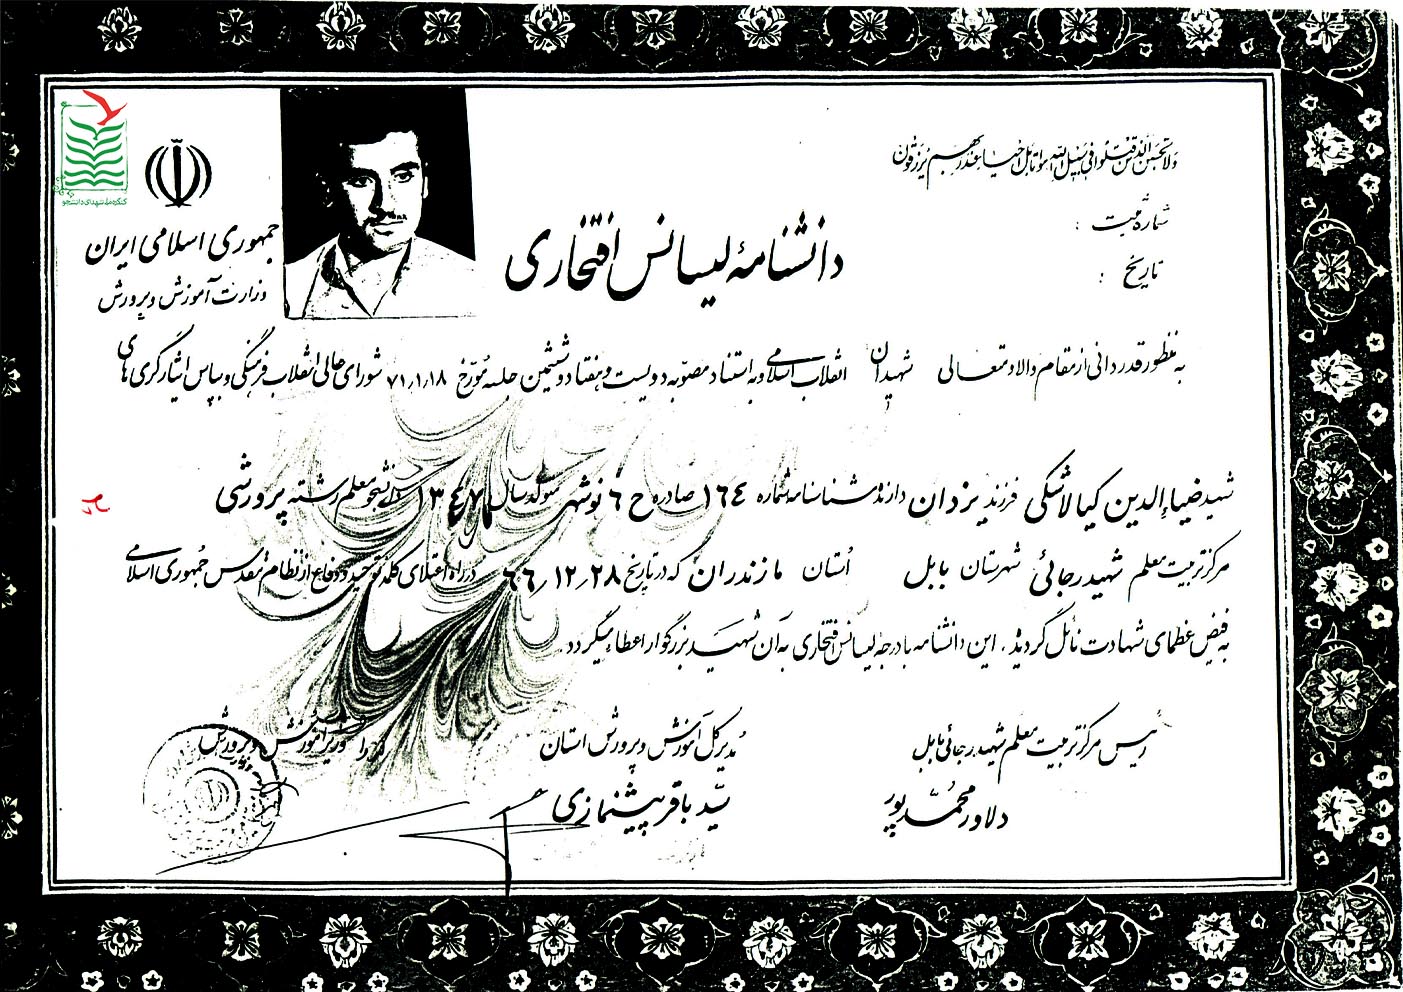 ولا تحسبن الذین قتلوا فی سبیل الله امواتا بل احیاء عند ربهم یرزقون
شماره ثبت :
تاریخ :
کنگره ملی شهدای دانشجو
جمهوری اسلامی ایران
وزارت آموزش و پرورش
دانشنامهٔ لیسانس افتخاری
به منظور قدردانی از مقام والا و متعالی شهیدان انقلاب اسلامی و به استناد مصوبه دویست و هفتاد و ششمین جلسه مورخ ۷۱/۱/۱۸ شورای عالی انقلاب فرهنگی و بپاس ایثارگری های
شهید ضیاءالدین کیالاشکی فرزند یزدان دارنده شناسنامه شماره ۱٦٤ صادره ح ٦ نوشهر متولد سال ۱۳٤۷ دانشجو معلم رشته پرورشی
مرکز تربیت معلم شهید رجائی شهرستان بابل اُستان مازندران که در تاریخ ٦٦/۱۲/۲۸ در راه اعتلای کلمه توحید و دفاع از نظام مقدس جمهوری اسلامی
به فیض عظمای شهادت نائل گردید، این دانشنامه با درجه لیسانس افتخاری به آن شهید بزرگوار اعطاء میگردد.
رئیس مرکز تربیت معلم شهید رجائی بابل
دلاور محمدپور
مدیر کل آموزش و پرورش استان
سیّد باقر پیشنمازی
وزیر آموزش و پرورش